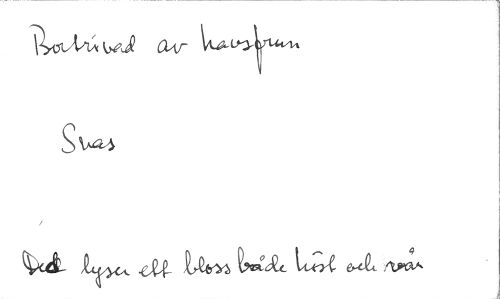 Bortrövad av havsfrun
Snas
Det lyser ett bloss både höst och vår